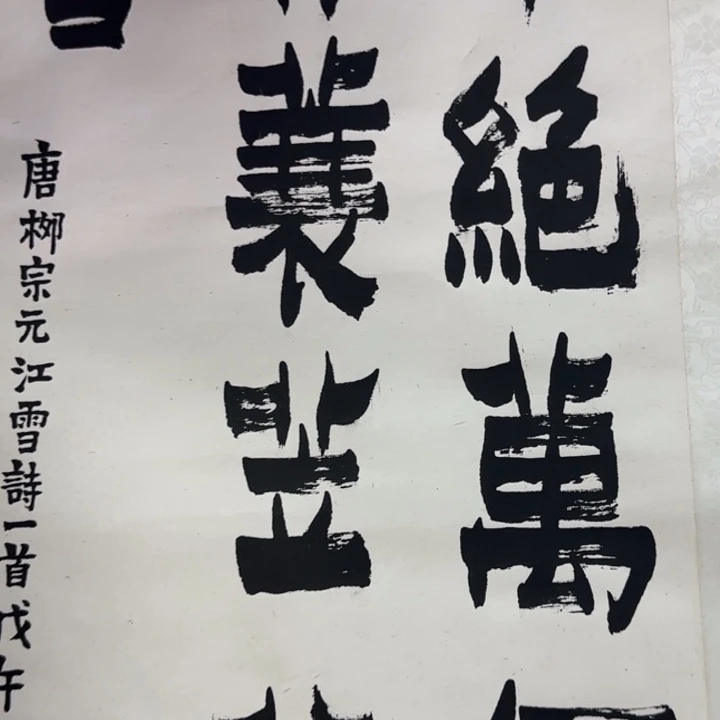 絕萬
蓑苙
唐柳宗元江雪詩一首戊午